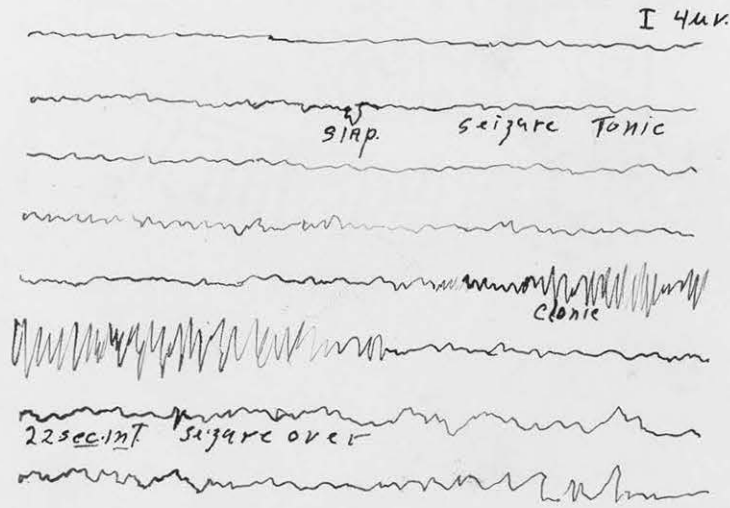 I 4uv.
slap. seizure Tonic
Clonic
22sec.int. seizure over